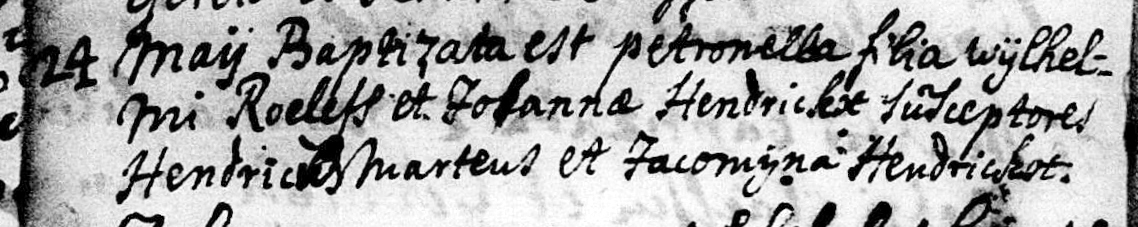 24 Maij Baptizata est petronella filia wijlhel-
mi Roeless et Johannæ Hendrickx susceptores
Hendricus Martens et Jacomijna Hendrickx.